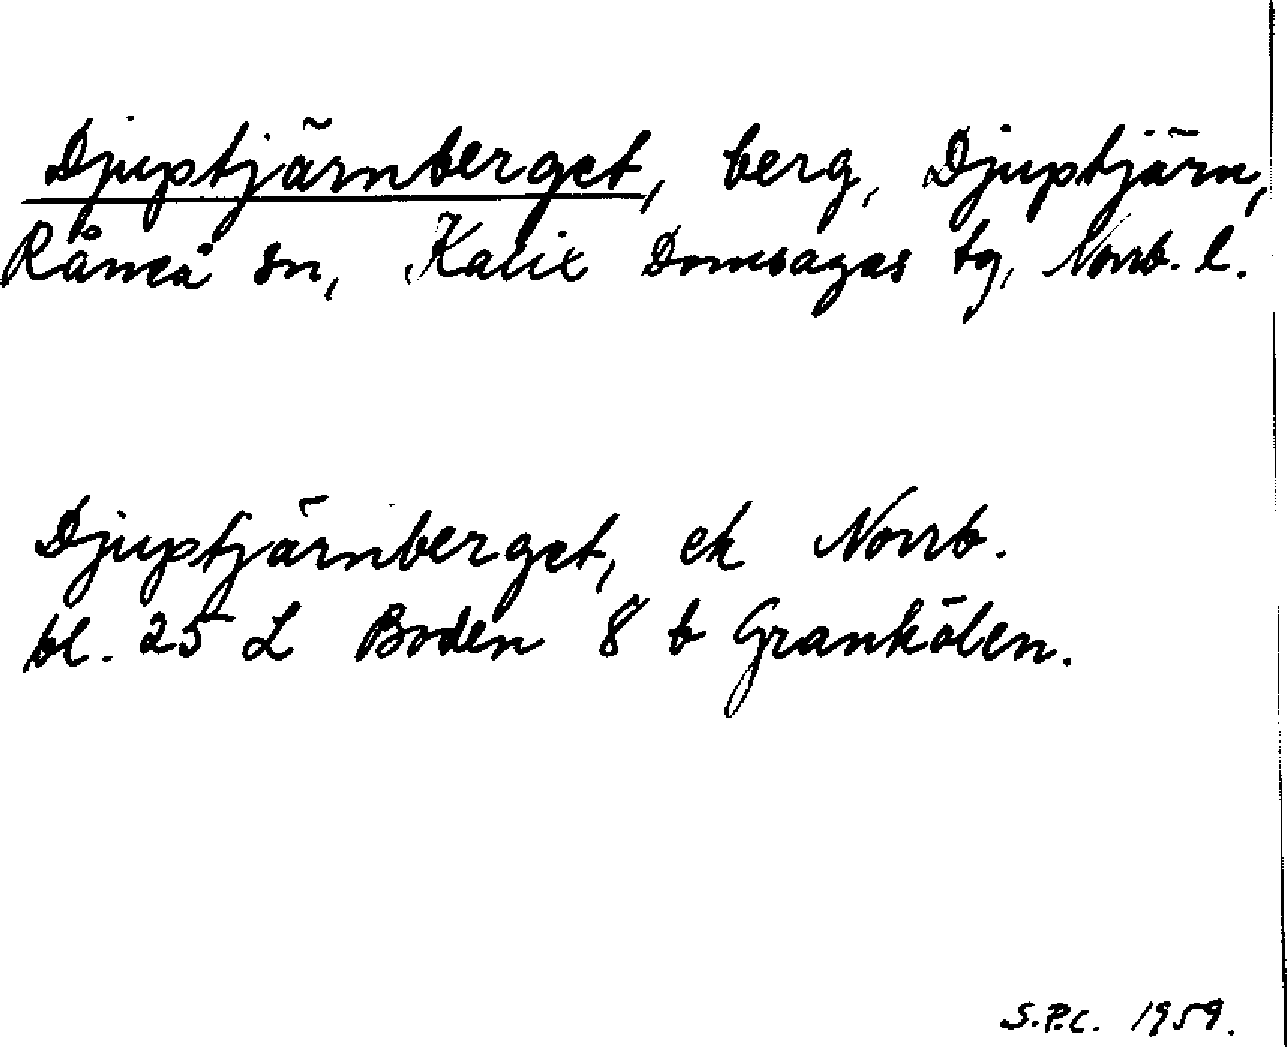 Djuptjärnberget, berg, Djuptjärn,
Råneå sn, Kalix Domsagas tg, Norrb. l.
Djuptjärnberget, ek Norrb.
bl. 25 L Boden 8 b Grankölen.
S.P.C. 1959.